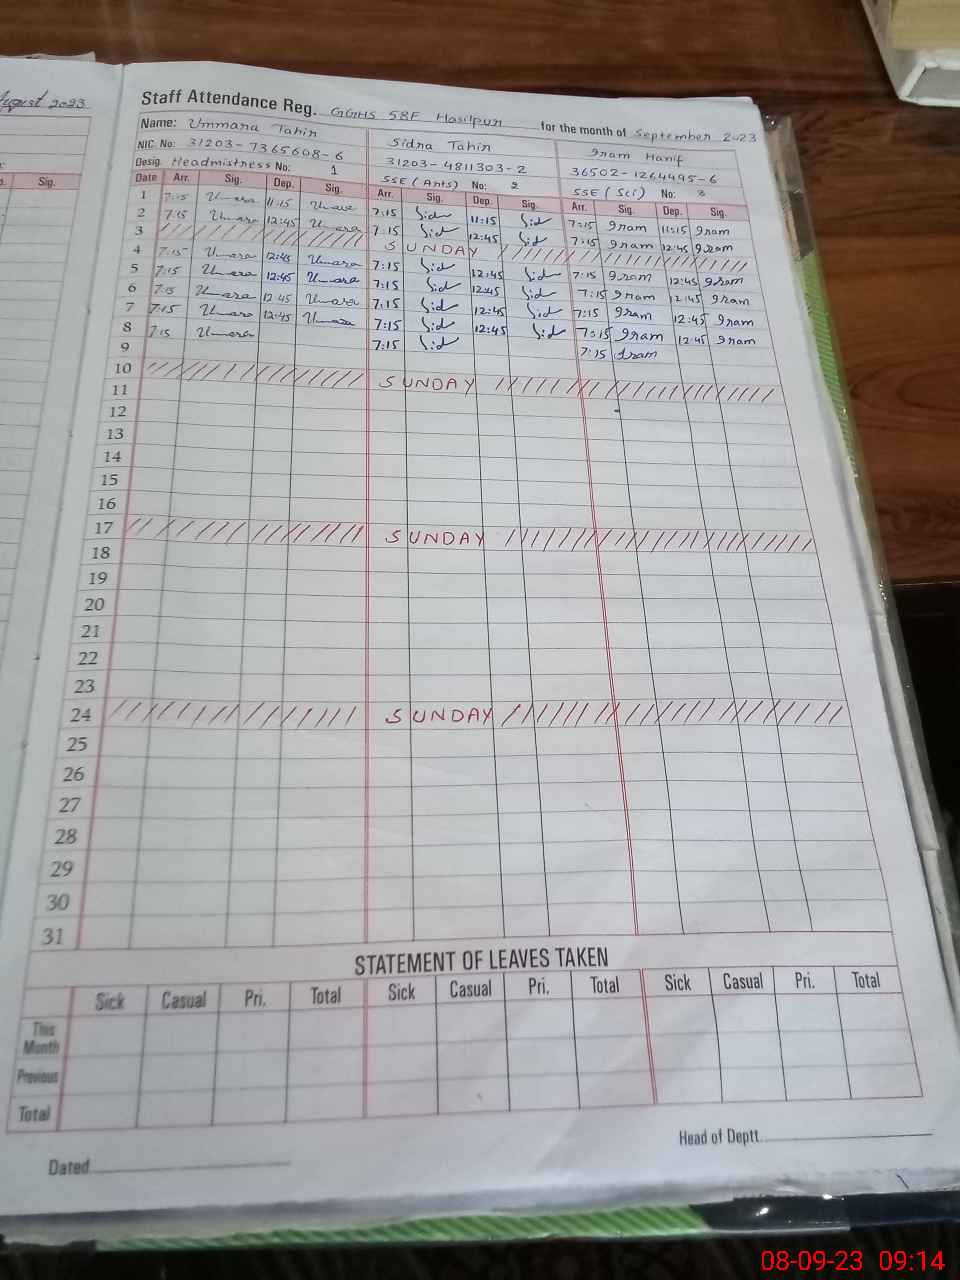 August 2023
Sig.
Staff Attendance Reg. GGHS 58F Hasilpur for the month of September 2023
Name: Ummara Tahir Sidra Tahir Iram Hanif
NIC. No: 31203-7365608-6 31203-4811303-2 36502-1264495-6
Desig. Headmistress No: 1 SSE (Arts) No: 2 SSE (Sci) No: 3
Date Arr. Sig. Dep. Sig. Arr. Sig. Dep. Sig. Arr. Sig. Dep. Sig.
1 7:15 Umara 11:15 Umara 7:15 Sid 11:15 Sid 7:15 Iram 11:15 Iram
2 7:15 Umara 12:45 Umara 7:15 Sid 12:45 Sid 7:15 Iram 12:45 Iram
3 SUNDAY
4 7:15 Umara 12:45 Umara 7:15 Sid 12:45 Sid 7:15 Iram 12:45 Iram
5 7:15 Umara 12:45 Umara 7:15 Sid 12:45 Sid 7:15 Iram 12:45 Iram
6 7:15 Umara 12:45 Umara 7:15 Sid 12:45 Sid 7:15 Iram 12:45 Iram
7 7:15 Umara 12:45 Umara 7:15 Sid 12:45 Sid 7:15 Iram 12:45 Iram
8 7:15 Umara 7:15 Sid 7:15 Iram
9
10 SUNDAY
11
12
13
14
15
16
17 SUNDAY
18
19
20
21
22
23
24 SUNDAY
25
26
27
28
29
30
31
STATEMENT OF LEAVES TAKEN
Sick Casual Pri. Total Sick Casual Pri. Total Sick Casual Pri. Total
This Month
Previous
Total
Dated Head of Deptt.
08-09-23 09:14